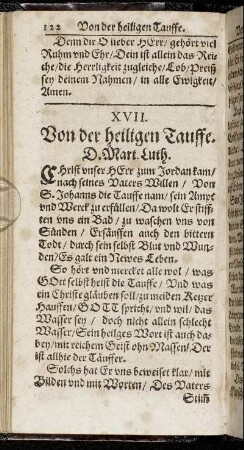 122 Von der heiligen Tauffe.
Denn dir O lieber HErr / gehört viel
Ruhm und Ehr / Dein ist allein das Rei-
che / die Herrligkeit zugleiche / Lob / Preiß
sey deinem Nahmen / in alle Ewigkeit /
Amen.
XVII.
Von der heiligen Tauffe.
D. Mart. Luth.
CHrist vnser HErr zum Jordan kam /
nach seines Vaters Willen / Von
S. Johanns die Tauffe nam / sein Ampt
vnd Werck zu erfüllen / Da wolt Er stiff-
ten vns ein Bad / zu waschen vns von
Sünden / Ersäuffen auch den bittern
Todt / durch sein selbst Blut vnd Wun-
den / Es galt ein Newes Leben.
So hört vnd mercket alle wol / was
GOtt selbst heist die Tauffe / Vnd was
ein Christe gläuben soll / zu meiden Ketzer
Hauffen / GOTT spricht / vnd wil / das
Wasser sey / doch nicht allein schlecht
Wasser / Sein heilges Wort ist auch da-
bey / mit reichem Geist ohn Massen / Der
ist allhie der Täuffer.
Solchs hat Er vns beweiset klar / mit
Bilden vnd mit Worten / Des Vaters
Stim̃